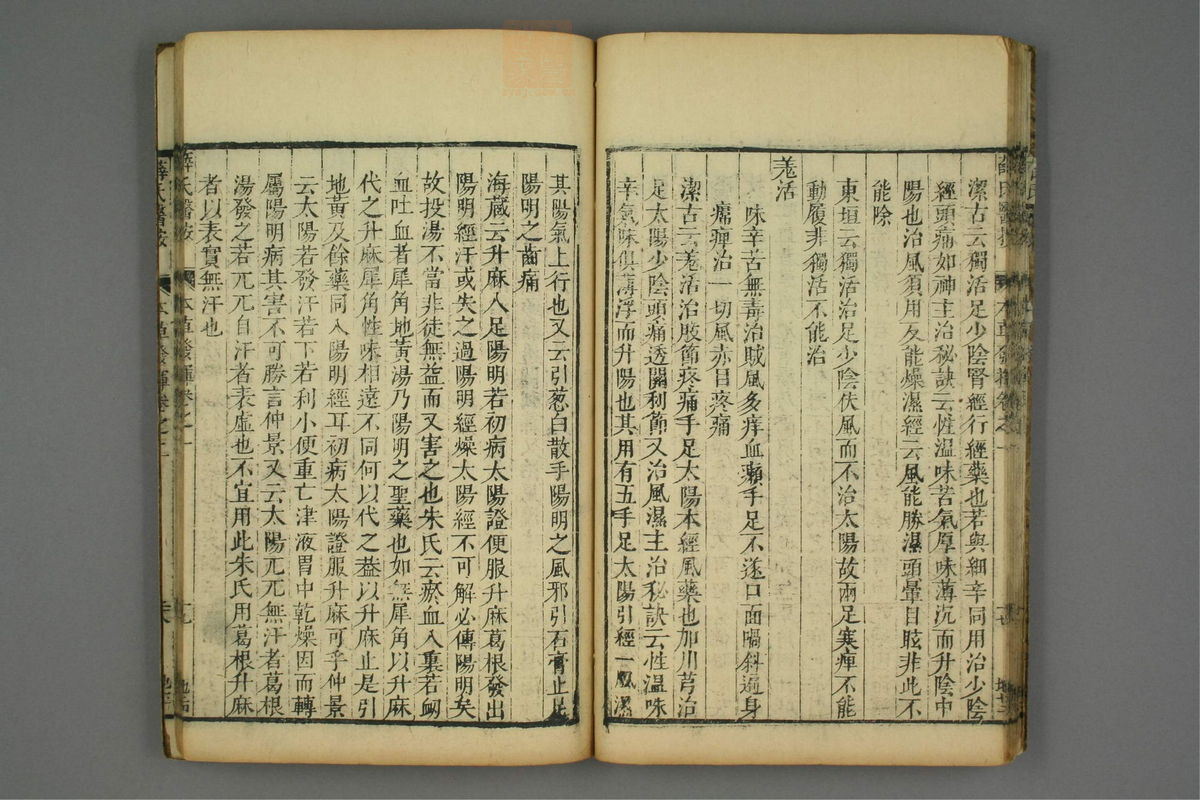 潔古云獨活足少陰腎經行經藥也若與細辛同用治少陰
經頭痛如神主治秘訣云性溫味苦氣厚味薄沉而升陰中
陽也治風須用及能燥濕經云風能勝濕頭暈目眩非此不
能除
東垣云獨活治足少陰伏風而不治太陽故兩足寒痺不能
動履非獨活不能治
羗活
味辛苦無毒治賊風多痒血癩手足不遂口面喎斜遍身
𤸷痺治一切風赤目疼痛
潔古云羗活治肢節疼痛手足太陽本經風藥也加川芎治
足太陽少陰頭痛透關利節又治風濕主治秘訣云性溫味
辛氣味俱薄浮而升陽也其用有五手足太陽引經一風濕
其陽氣上行也又云引葱白散手陽明之風邪引石膏止足
陽明之齒痛
海藏云升麻入足陽明若初病太陽證便服升麻葛根發出
陽明經汗或失之過陽明經燥太陽經不可解必傳陽明矣
故投湯不當非徒無益而又害之也朱氏云瘀血入裏若衂
血吐血者犀角地黃湯乃陽明之聖藥也如無犀角以升麻
代之升麻犀角性味相遠不同何以代之葢以升麻止是引
地黃及餘藥同入陽明經耳初病太陽證服升麻可乎仲景
云太陽若發汗若下若利小便重亡津液胃中乾燥因而轉
屬陽明病其害不可勝言仲景又云太陽兀兀無汗者葛根
湯發之若兀兀自汗者表虛也不宜用此朱氏用葛根升麻
者以表實無汗也
薛氏醫按 本草發揮卷之二